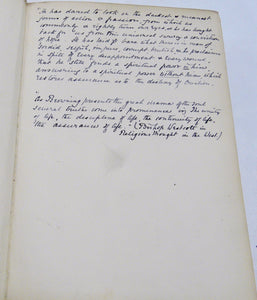 "He has dared to look on the darkest & meanest
forms of action & passion, from which we
commonly & rightly turn our eyes, & he has brought
back for us from this universal survey a conviction
of hope. He has laid bare what there is in man of
sordid, selfish, impure, corrupt, brutish, & he proclaims
in spite of every disappointment & every wound,
that he still finds a spiritual power in him,
answering to a spiritual power without him, which
restores assurance as to the destiny of creation.
"As Browning presents the great drama of the soul
several truths come into prominence viz. The unity
of life, the discipline of life, the continuity of life,
the assurance of life." (Bishop Westcott in
Religious thought in the West)